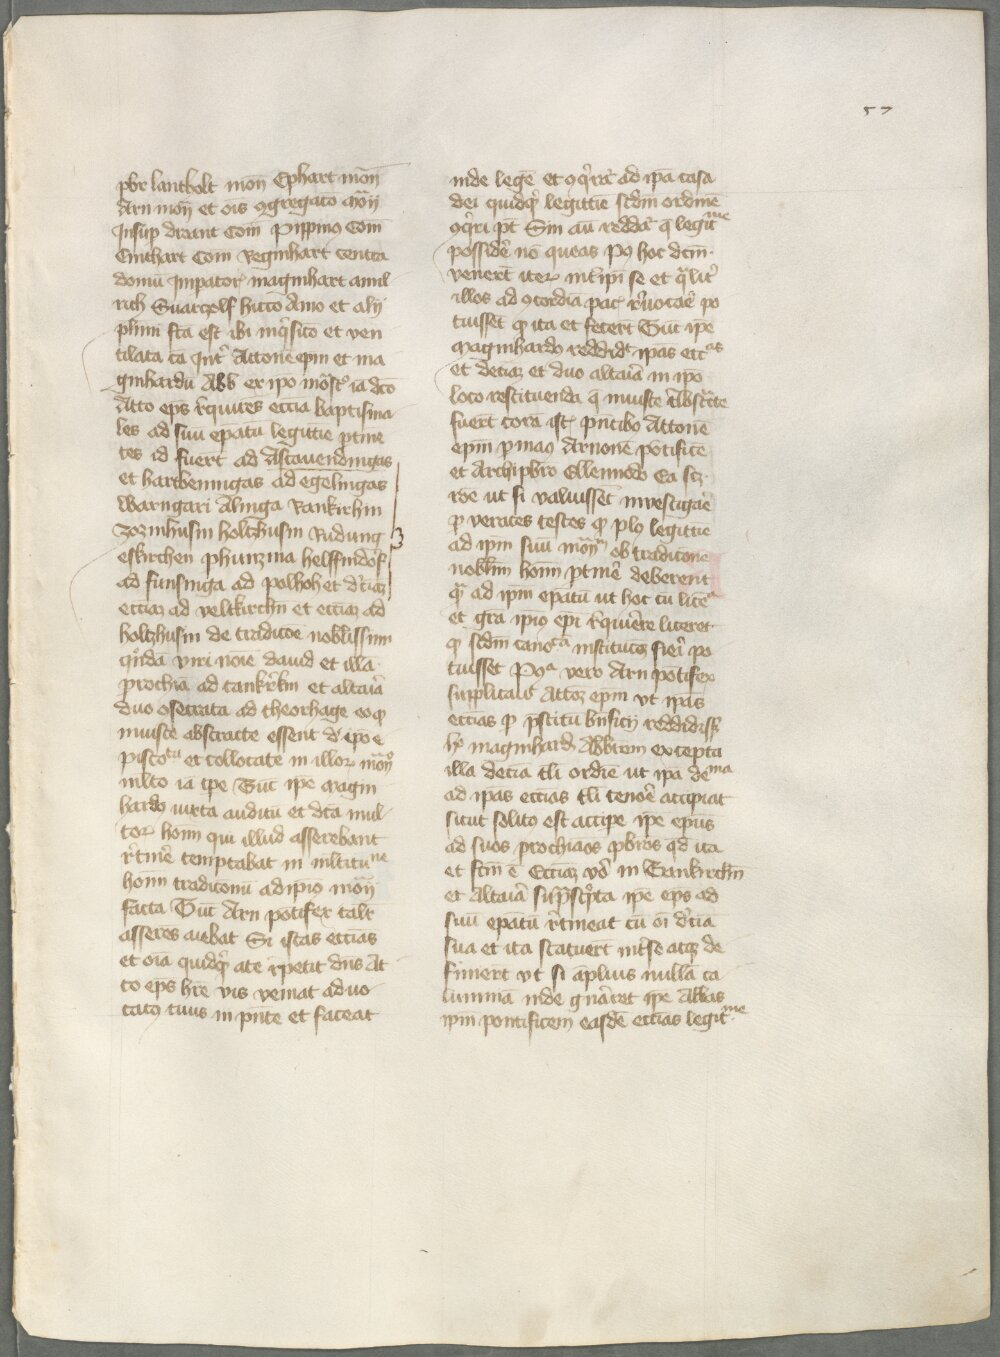 57
pbr lantbolt mon̄ Ephart mōn
Arn mon̄ et ois ꝯgregatō mōn
Insup dreant Com̄ Pippinꝰ Com̄
Cunthart Com̄ Reginhart centra
domū Impatorꝭ maginhart amil
rich Suarczolf hitto Amo et alij
plimi fta est ibi inqͥsico et ven
tilata ca Int̾ Attonē epm et ma
ginhardū Abb ex ipo mōstͦ ia dco
Atto epͥs req̇rites eccia baptisma
les ad suū epatū legittie ptine
tes id fuert ad Ascauendingas
et hartbenningas ad egelingas
warngari Alinga Rankirhin
Zozinhusin holtzhusin Rudung
eskirchen phunzina helffindorf
ad funsinga ad polhoh et dēciaꝫ
ecciaꝫ ad veltkirchn et ecciaꝫ ad
holtzhusin de tradicōe nobilissimi
qͦidā viri noīe dauid et illā
prochiā ad tankirkn et altaria
duo ꝯsecrata ad theorhage eo ꝙ
iniuste abstracte essent d̾ ipo e
piscoᵗᵘ et collocate in illorꝭ mōnͦ
inlco ia ipe Tūc ipe magin
hardꝰ iuxta auditū et dcā mul
torꝭ hoīm qui illud asserebant
r̾tinē temptabat in inltituⁿᵉ
hoīm tradiconū ad ipīo mōn
facta Tūc Arn pōtifex tal̾r
asseres aiebat Si istas eccias
et oīa quidqͥ ate repetit dn̄s At
to epͥs hr̄e vis veniat aduo
catꝰ tuus in pn̄te et faceat
inde legē et ꝯqͥrat̾ ad ipā casa
dei quidqͥ legittie scdm ordinē
ꝯqͥri pt̄ Sin au reddat̾ q legitͥme
possidē nō queas Pꝰ hoc dcm
venert iterꝭ int̾ ipī se et qͣlit̾
illos ad ꝯcordia pacꝭ reuocaē po
tuisset ꝙ ita et fecert Tūc ipe
Maginhardꝰ reddidͭ ipas eccᵃˢ
et deciaꝫ et duo altaīa in ipo
loco restituenda q iniuste abstͣcte
fuert corā istꝭ pn̄tibꝰ Attone
epm p̄maꝰ Arnonē pōtificē
et Archipbro Ellennodo Ea scꝫ
roē ut si valuisset inuestigaē
p veraces testes ꝙ plꝰ legittie
ad ipm suū mōnͫ ob tradiconē
nobiliu hoīm ptinē deberent
qͣ ad ipm epatū ut hoc cu licēᵃ
et gra ipīo epī requirere liceret
ꝙ scdm canoᶜᵃ institucōꝫ fieri po
tuisset Pꝰᵃ vero Arn pōtifex
supplicauͭ Attoꝫ epm vt ipas
eccias ꝙ p̄stitu bn̄ficij reddidisꝫ
hͦ maginhardͦ Abbitem excepta
illa decia tli ordīe ut ipa deᵐᵃ
ad ipas eccias tli tenōe accipiat
sicut solito est accipe ipe epūs
ad suos prochianos pbrōs qd̄ ita
et fcm ē Ecciaꝫ vo̾ in Trankirchn
et Altaīa sup̄scͥpta ipe eps ad
suū epatū r̾tineat cū oī decia
sua et ita statuert int̾se atqꝫ de
finiert vt si ampliuis nullā ca
lumniā inde gn̄aret ipe Abbas
ipm pontificem easdē eccias legitͥᵐᵉ